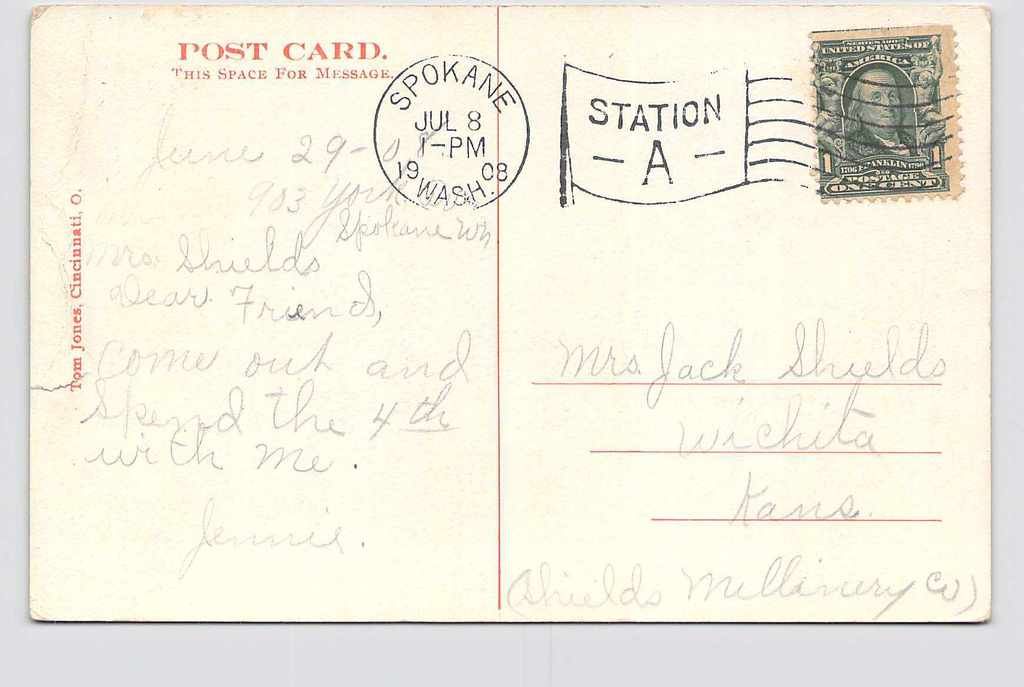 POST CARD.
THIS SPACE FOR MESSAGE.
June 29-08.
903 York
Spokane Wn
Mrs. Shields
Dear Friend,
Come out and
Spend the 4th
with me.
Jennie.
Tom Jones, Cincinnati, O.
SPOKANE
JUL 8
1-PM
19 08
WASH.
STATION
- A -
SERIES 1902
UNITED STATES OF
AMERICA
1 1
1706 FRANKLIN 1790
POSTAGE
ONE CENT
Mrs. Jack Shields
Wichita
Kans.
(Shields Millinery Co)